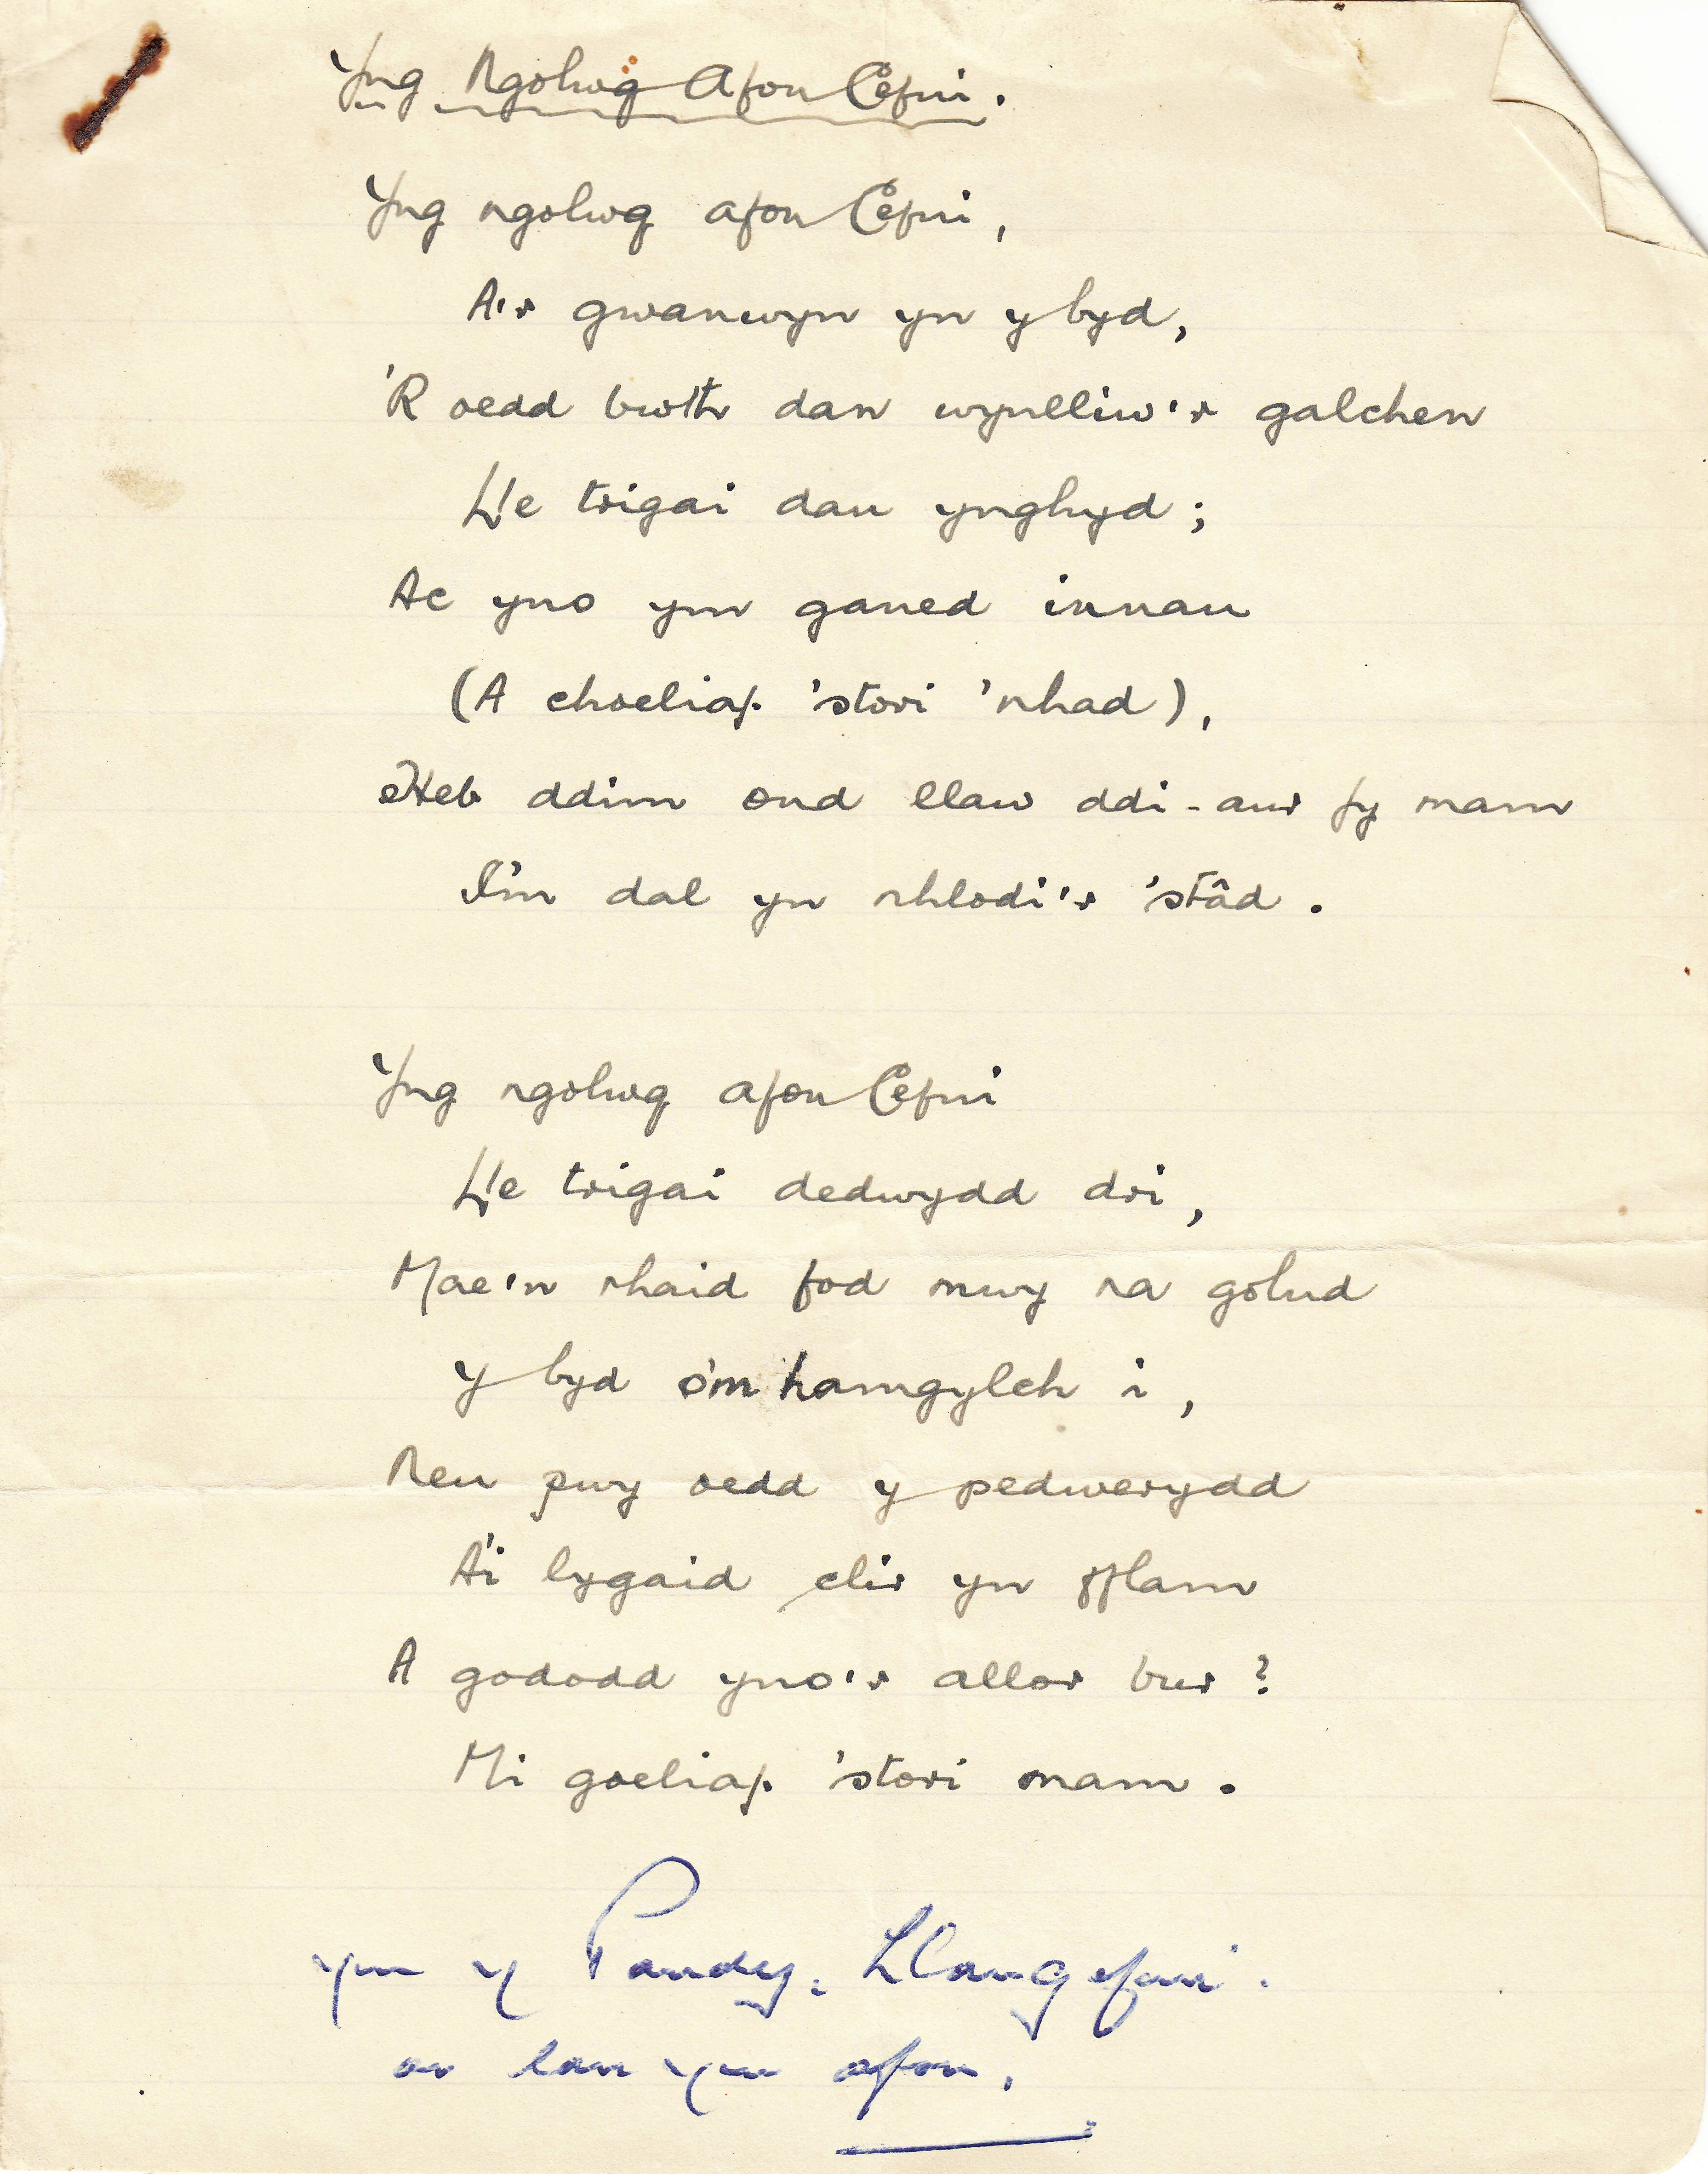 Yng Ngolwg Afon Cefni.
Yng ngolwg afon Cefni,
A'r gwanwyn yn y byd,
'R oedd bwth dan wynlliw'r galchen
Lle trigai dau ynghyd;
Ac yno ym ganed innau
(A choeliaf 'stori 'nhad),
Heb ddim ond llaw ddi-aur fy mam
I'm dal yn nhlodi'r 'stâd.
Yng ngolwg afon Cefni
Lle trigai dedwydd dri,
Mae'n rhaid fod mwy na golud
Y byd o'm hamgylch i,
Neu pwy oedd y pedwerydd
A'i lygaid clir yn fflam
A gododd yno'r allor bur?
Mi goeliaf 'stori mam.
Ym y Pandy, Llangefni.
ar lan yr afon.